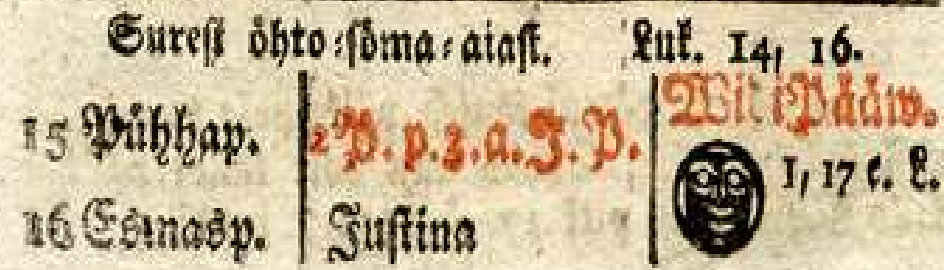 Surest öhto-söma-aiast. Luk. 14, 16.
15 Pühhap. 2 P. p. 3. a. J. P. Witi Pääw.
1, 17 e. L.
16 Esmasp. Justina